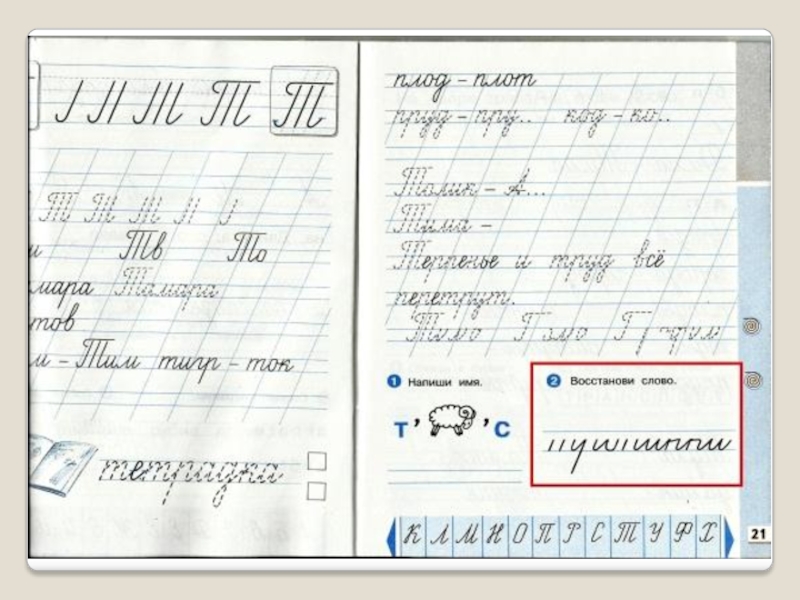 Т Т Т
Т Т Т
Тв То
мара Тамара
тов
– Тим тигр – ток
тетрадка
плод – плот
пруд – пру.. код – ко..
Толик – А...
Тима –
Терпенье и труд всё
перетрут.
1 Напиши имя.
Т ’ ’ С
2 Восстанови слово.
К Л М Н О П Р С Т У Ф Х
21